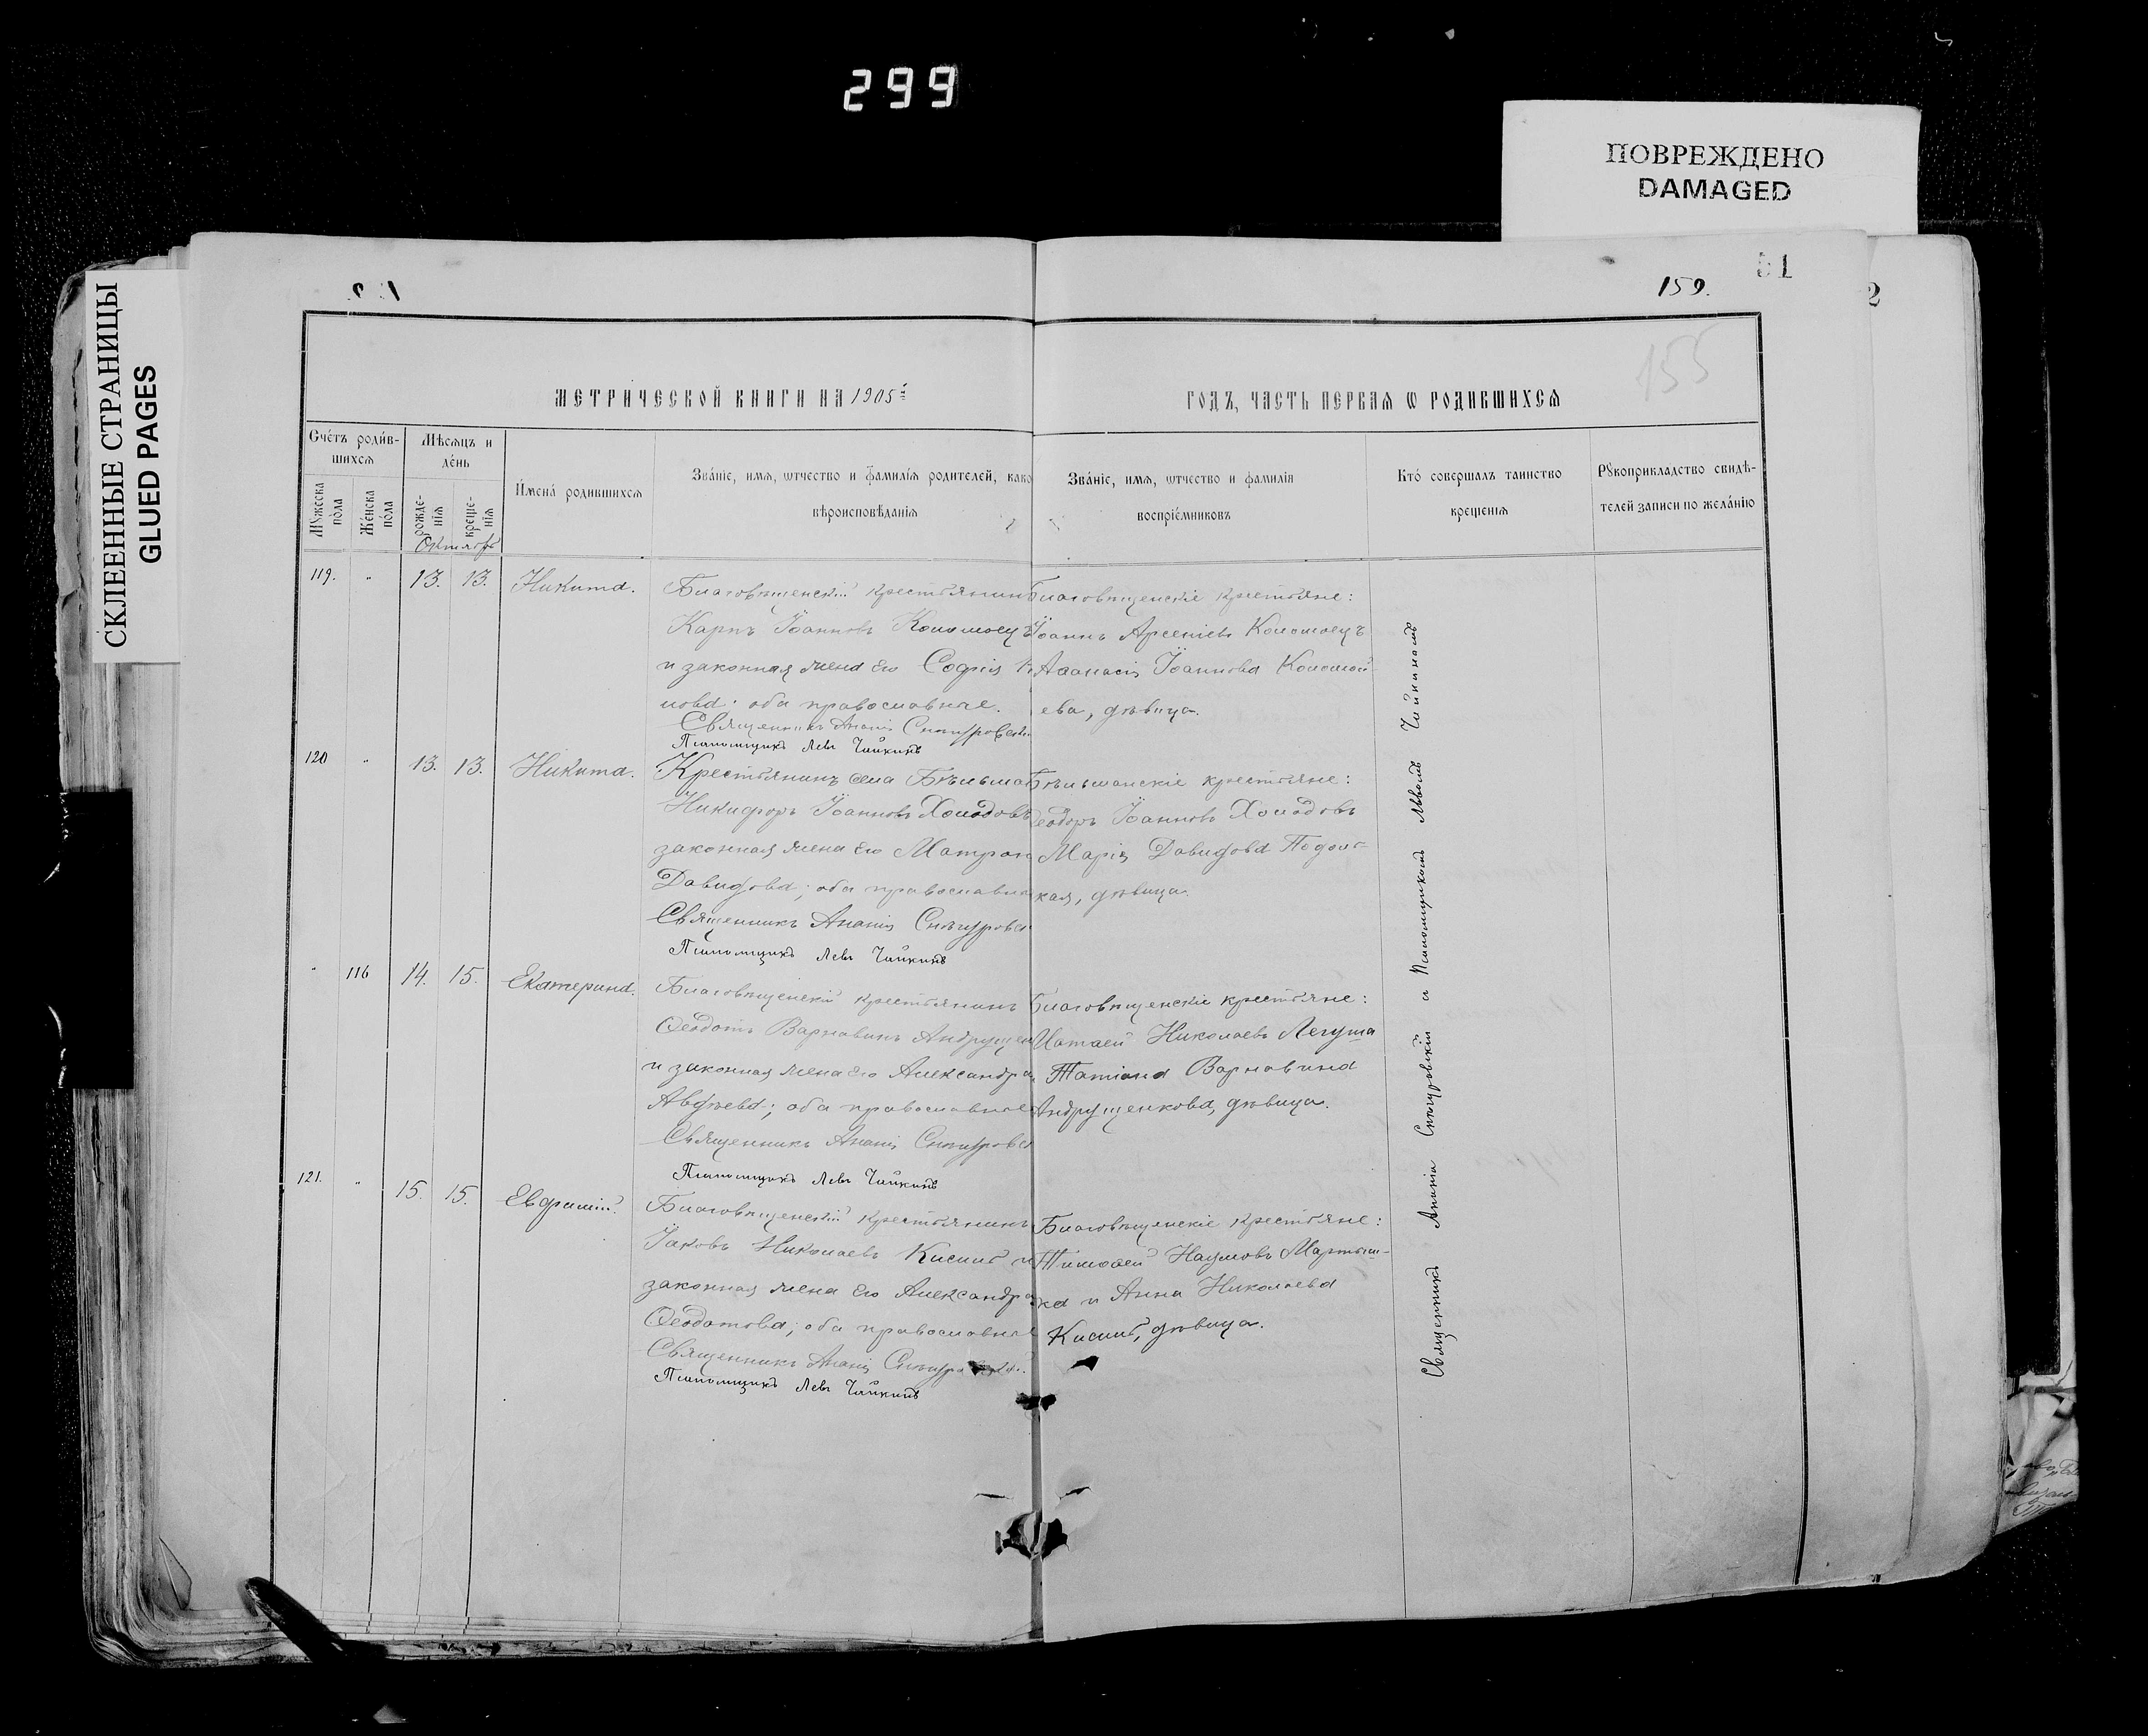 299
ПОВРЕЖДЕНО
DAMAGED
СКЛЕЕННЫЕ СТРАНИЦЫ
GLUED PAGES
51
159.
2
155
МЕТРИЧЕСКОЙ КНИГИ НА 1905й
ГОДЪ, ЧАСТЬ ПЕРВАЯ Ѡ РОДИВШИХСѦ
Сче́тъ роди́в-
шихсѧ
Мꙋ́жеска по́ла
Же́нска по́ла
Мѣ́сѧцъ и
де́нь
рожде-
нїѧ
креще-
нїѧ
И́мена́ родившихсѧ
Зва́нїе, имѧ, ѡтчество и фами́лїѧ родителей, како
вѣроисповѣ́данїѧ
Зва́нїе, имѧ, ѡтчество и фамилїѧ
воспрїе́мниковъ
Кто́ совершалъ таинство
крещенїѧ
Рꙋкоприкладство свидѣ-
телей записи по жела́нїю
Октябрь
119.
"
13.
13.
Никита.
Благовѣщенскій крестьянинъ
Карпъ Іоанновъ Коломоецъ
и законная жена его Софія
нова; оба православные.
Священникъ Ананія Снѣгуровскій
Псаломщикъ Левъ Чайкинъ
Благовѣщенскіе крестьяне:
Іоаннъ Арсеніевъ Коломоецъ
Аѳанасія Іоаннова Коломой-
ева, дѣвица.
120
"
13.
13.
Никита.
Крестьянинъ села Бѣльма
Никифоръ Іоанновъ Холодовъ
законная жена его Матрон
Давидова; оба православны
Священникъ Ананія Снѣгуровск
Псаломщикъ Левъ Чайкинъ
Бѣльманскіе крестьяне:
Ѳеодоръ Іоанновъ Холодовъ
Марія Давидова Подоль-
кая, дѣвица.
"
116
14.
15.
Екатерина.
Благовѣщенскій крестьянинъ
Ѳеодотъ Варнавинъ Андрущен
и законная жена его Александра
Авдѣева; оба православные
Священникъ Ананія Снѣгуровск
Псаломщикъ Левъ Чайкинъ
Благовѣщенскіе крестьяне:
Николаевъ Легуша
Татіана Варнавина
Андрущенкова, дѣвица.
121.
"
15.
15.
Евфимій.
Благовѣщенскій крестьянинъ
Іаковъ Николаевъ Кисиль и
законная жена его Александра
Ѳеодотова; оба православные
Священникъ Ананія Снѣгуровскій
Псаломщикъ Левъ Чайкинъ
Благовѣщенскіе крестьяне:
Тимоѳей Наумовъ Мартыш-
ка и Анна Николаева
Кисиль, дѣвица.
Священникъ Ананія Снѣгуровскій и Псаломщикомъ Львомъ Чайкинымъ